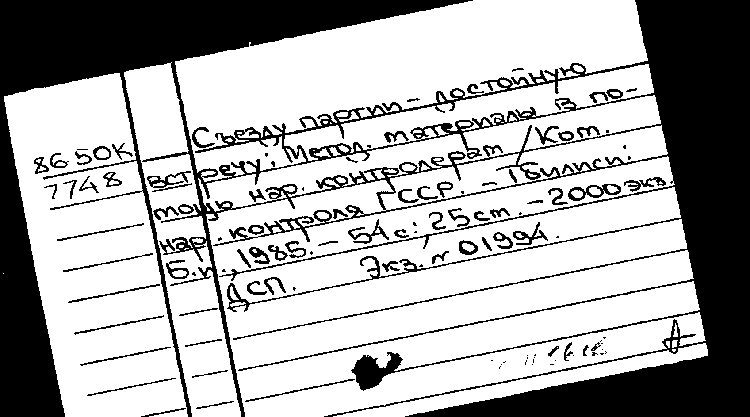 86-50К
7748
Съезду партии - достойную
встречу: Метод. материалы в по-
мощь нар. контролерам / Ком.
нар. контроля ГССР. - Тбилиси:
Б.и., 1985. - 54 с.; 25 cm. - 2000 экз.
ДСП. Экз. № 01994.